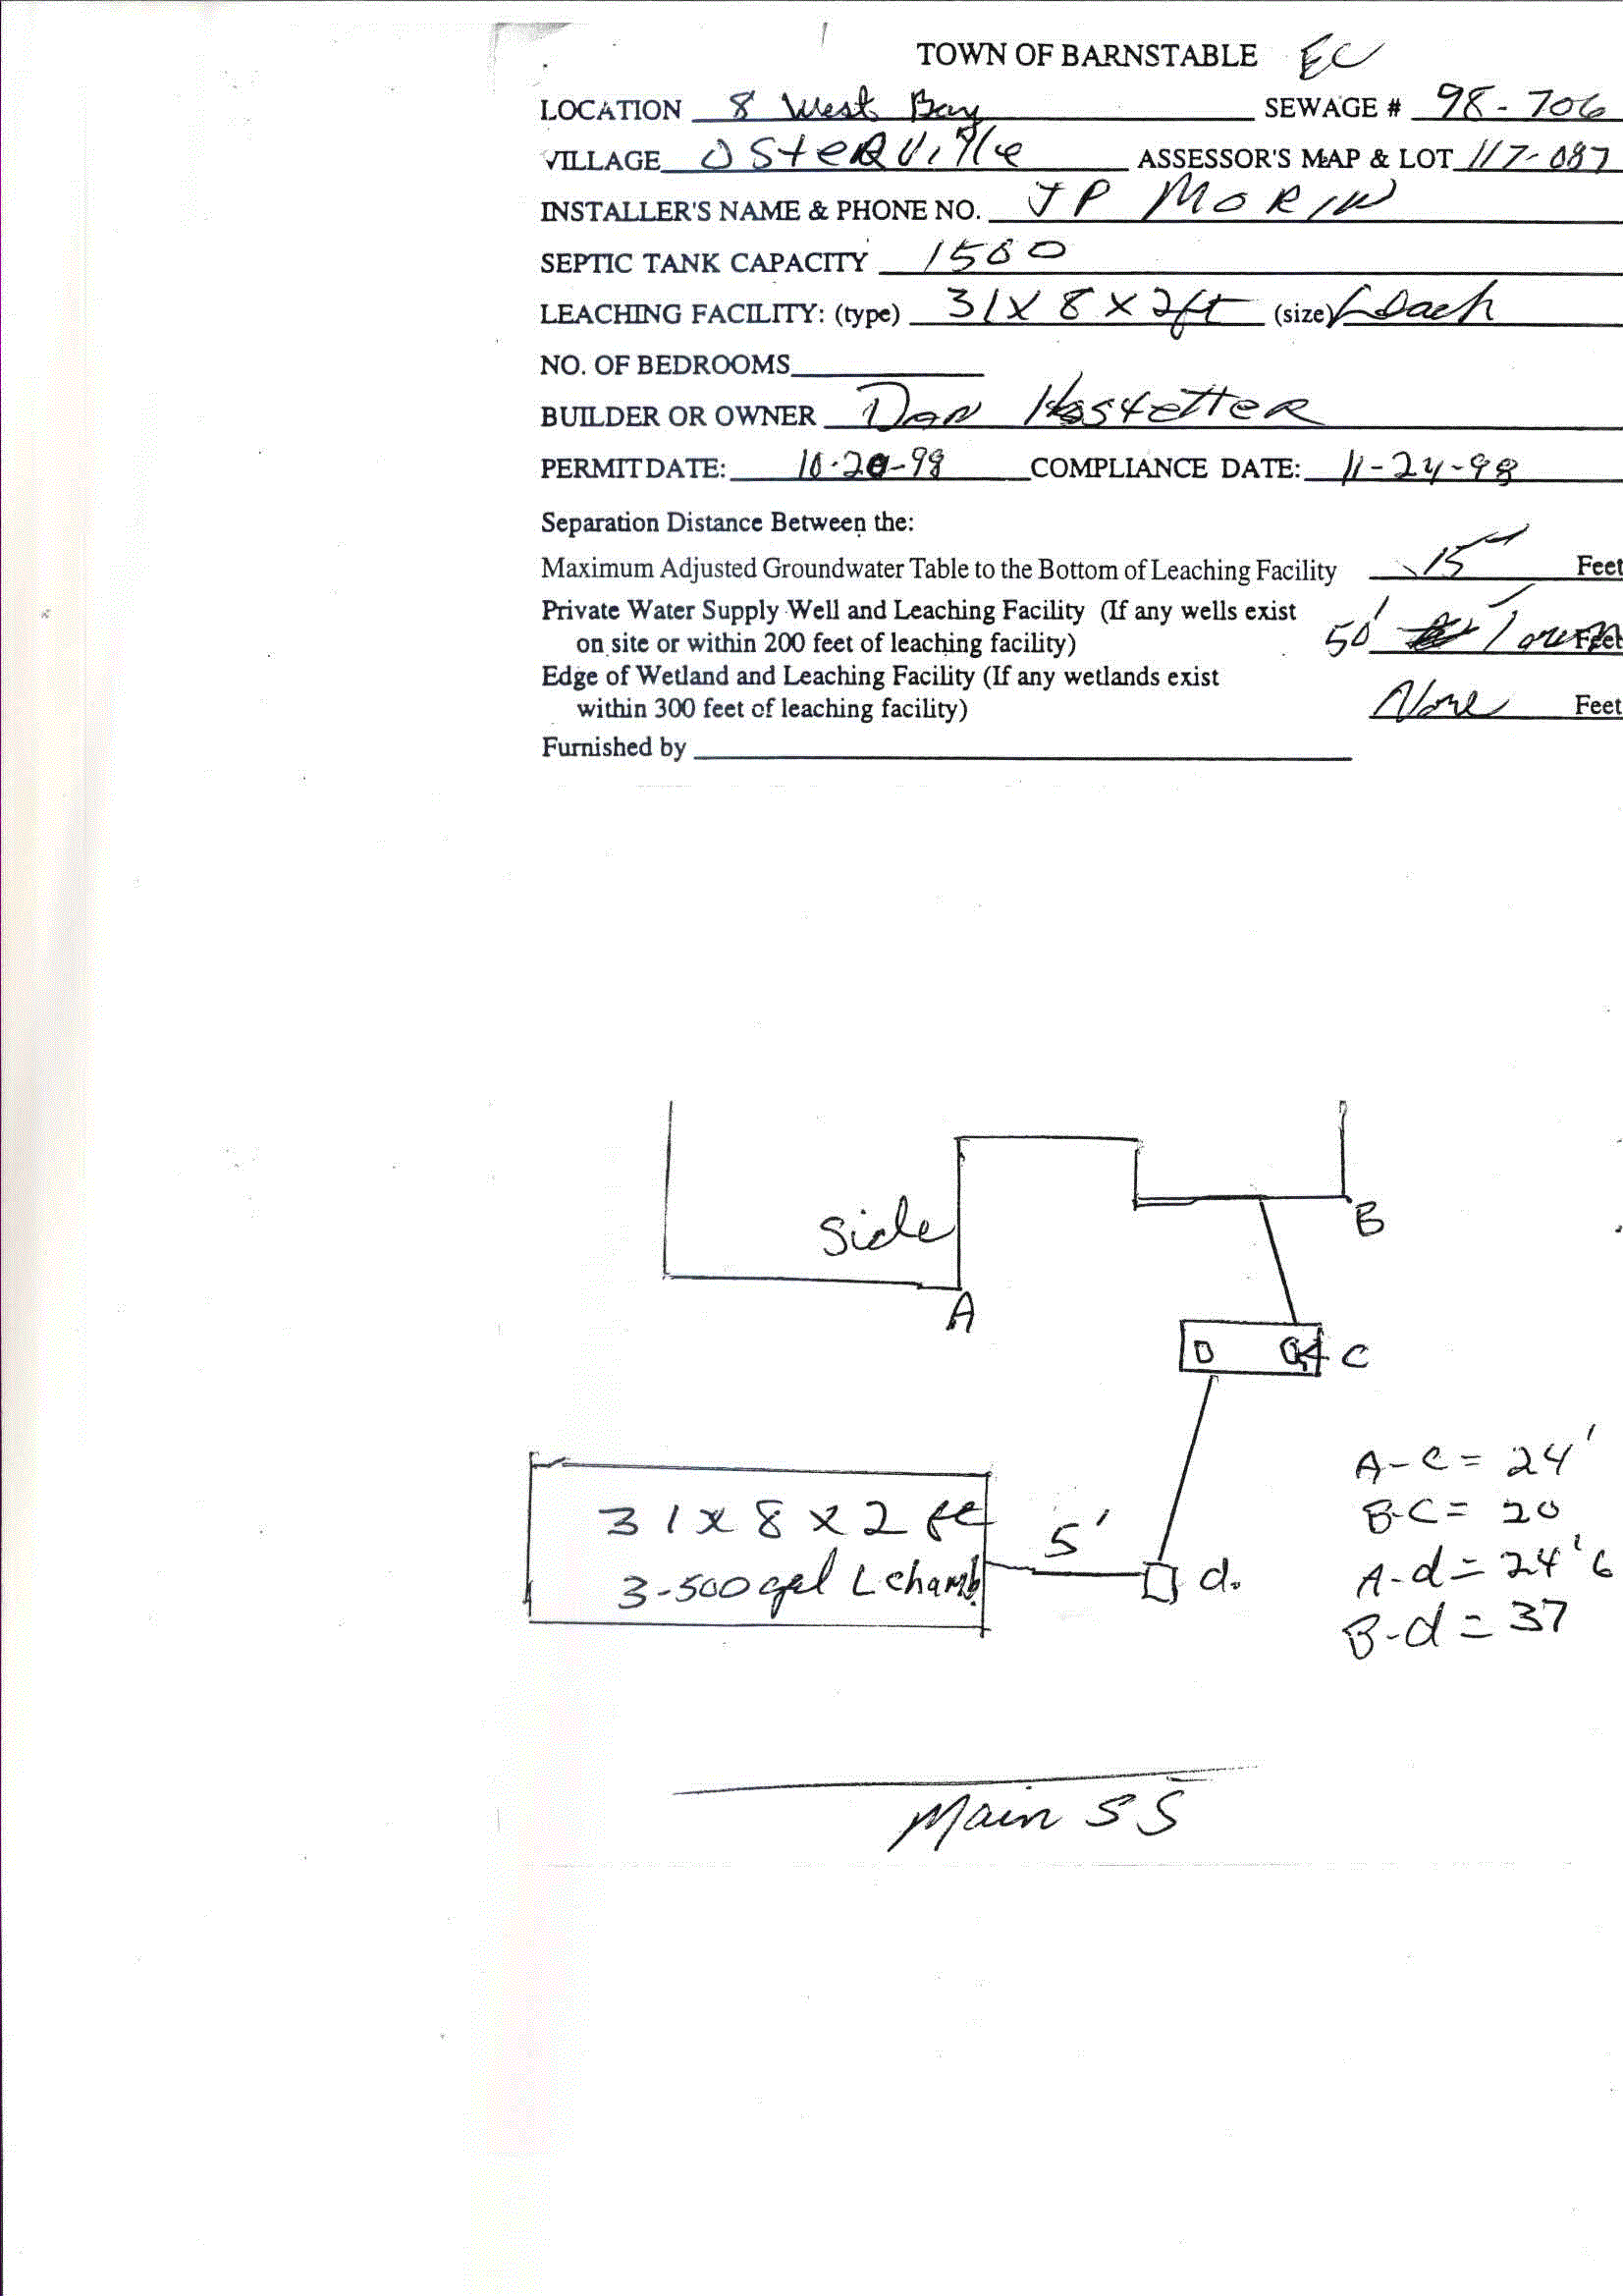 TOWN OF BARNSTABLE EC
LOCATION 8 West Bay SEWAGE # 98-706
VILLAGE OSteRVille ASSESSOR'S MAP & LOT 117-087
INSTALLER'S NAME & PHONE NO. JP MORIN
SEPTIC TANK CAPACITY 1500
LEACHING FACILITY: (type) 31 X 8 X 2ft (size) Leach
NO. OF BEDROOMS
BUILDER OR OWNER Dan HostetteR
PERMITDATE: 10-20-98 COMPLIANCE DATE: 11-24-98
Separation Distance Between the:
Maximum Adjusted Groundwater Table to the Bottom of Leaching Facility 15 Feet
Private Water Supply Well and Leaching Facility (If any wells exist
on site or within 200 feet of leaching facility) 50' Feet
Edge of Wetland and Leaching Facility (If any wetlands exist
within 300 feet of leaching facility) None Feet
Furnished by
Side
B
A
C
A-C = 24'
31 x 8 x 2 ft
B-C = 20
5'
3-500 gal L chamb.
d.
A-d = 24'6
B-d = 37
Main